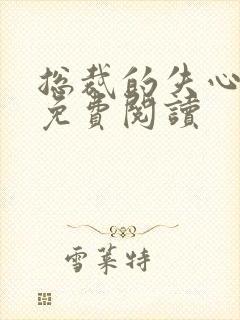 总裁的失心
免費閱讀
雪萊特